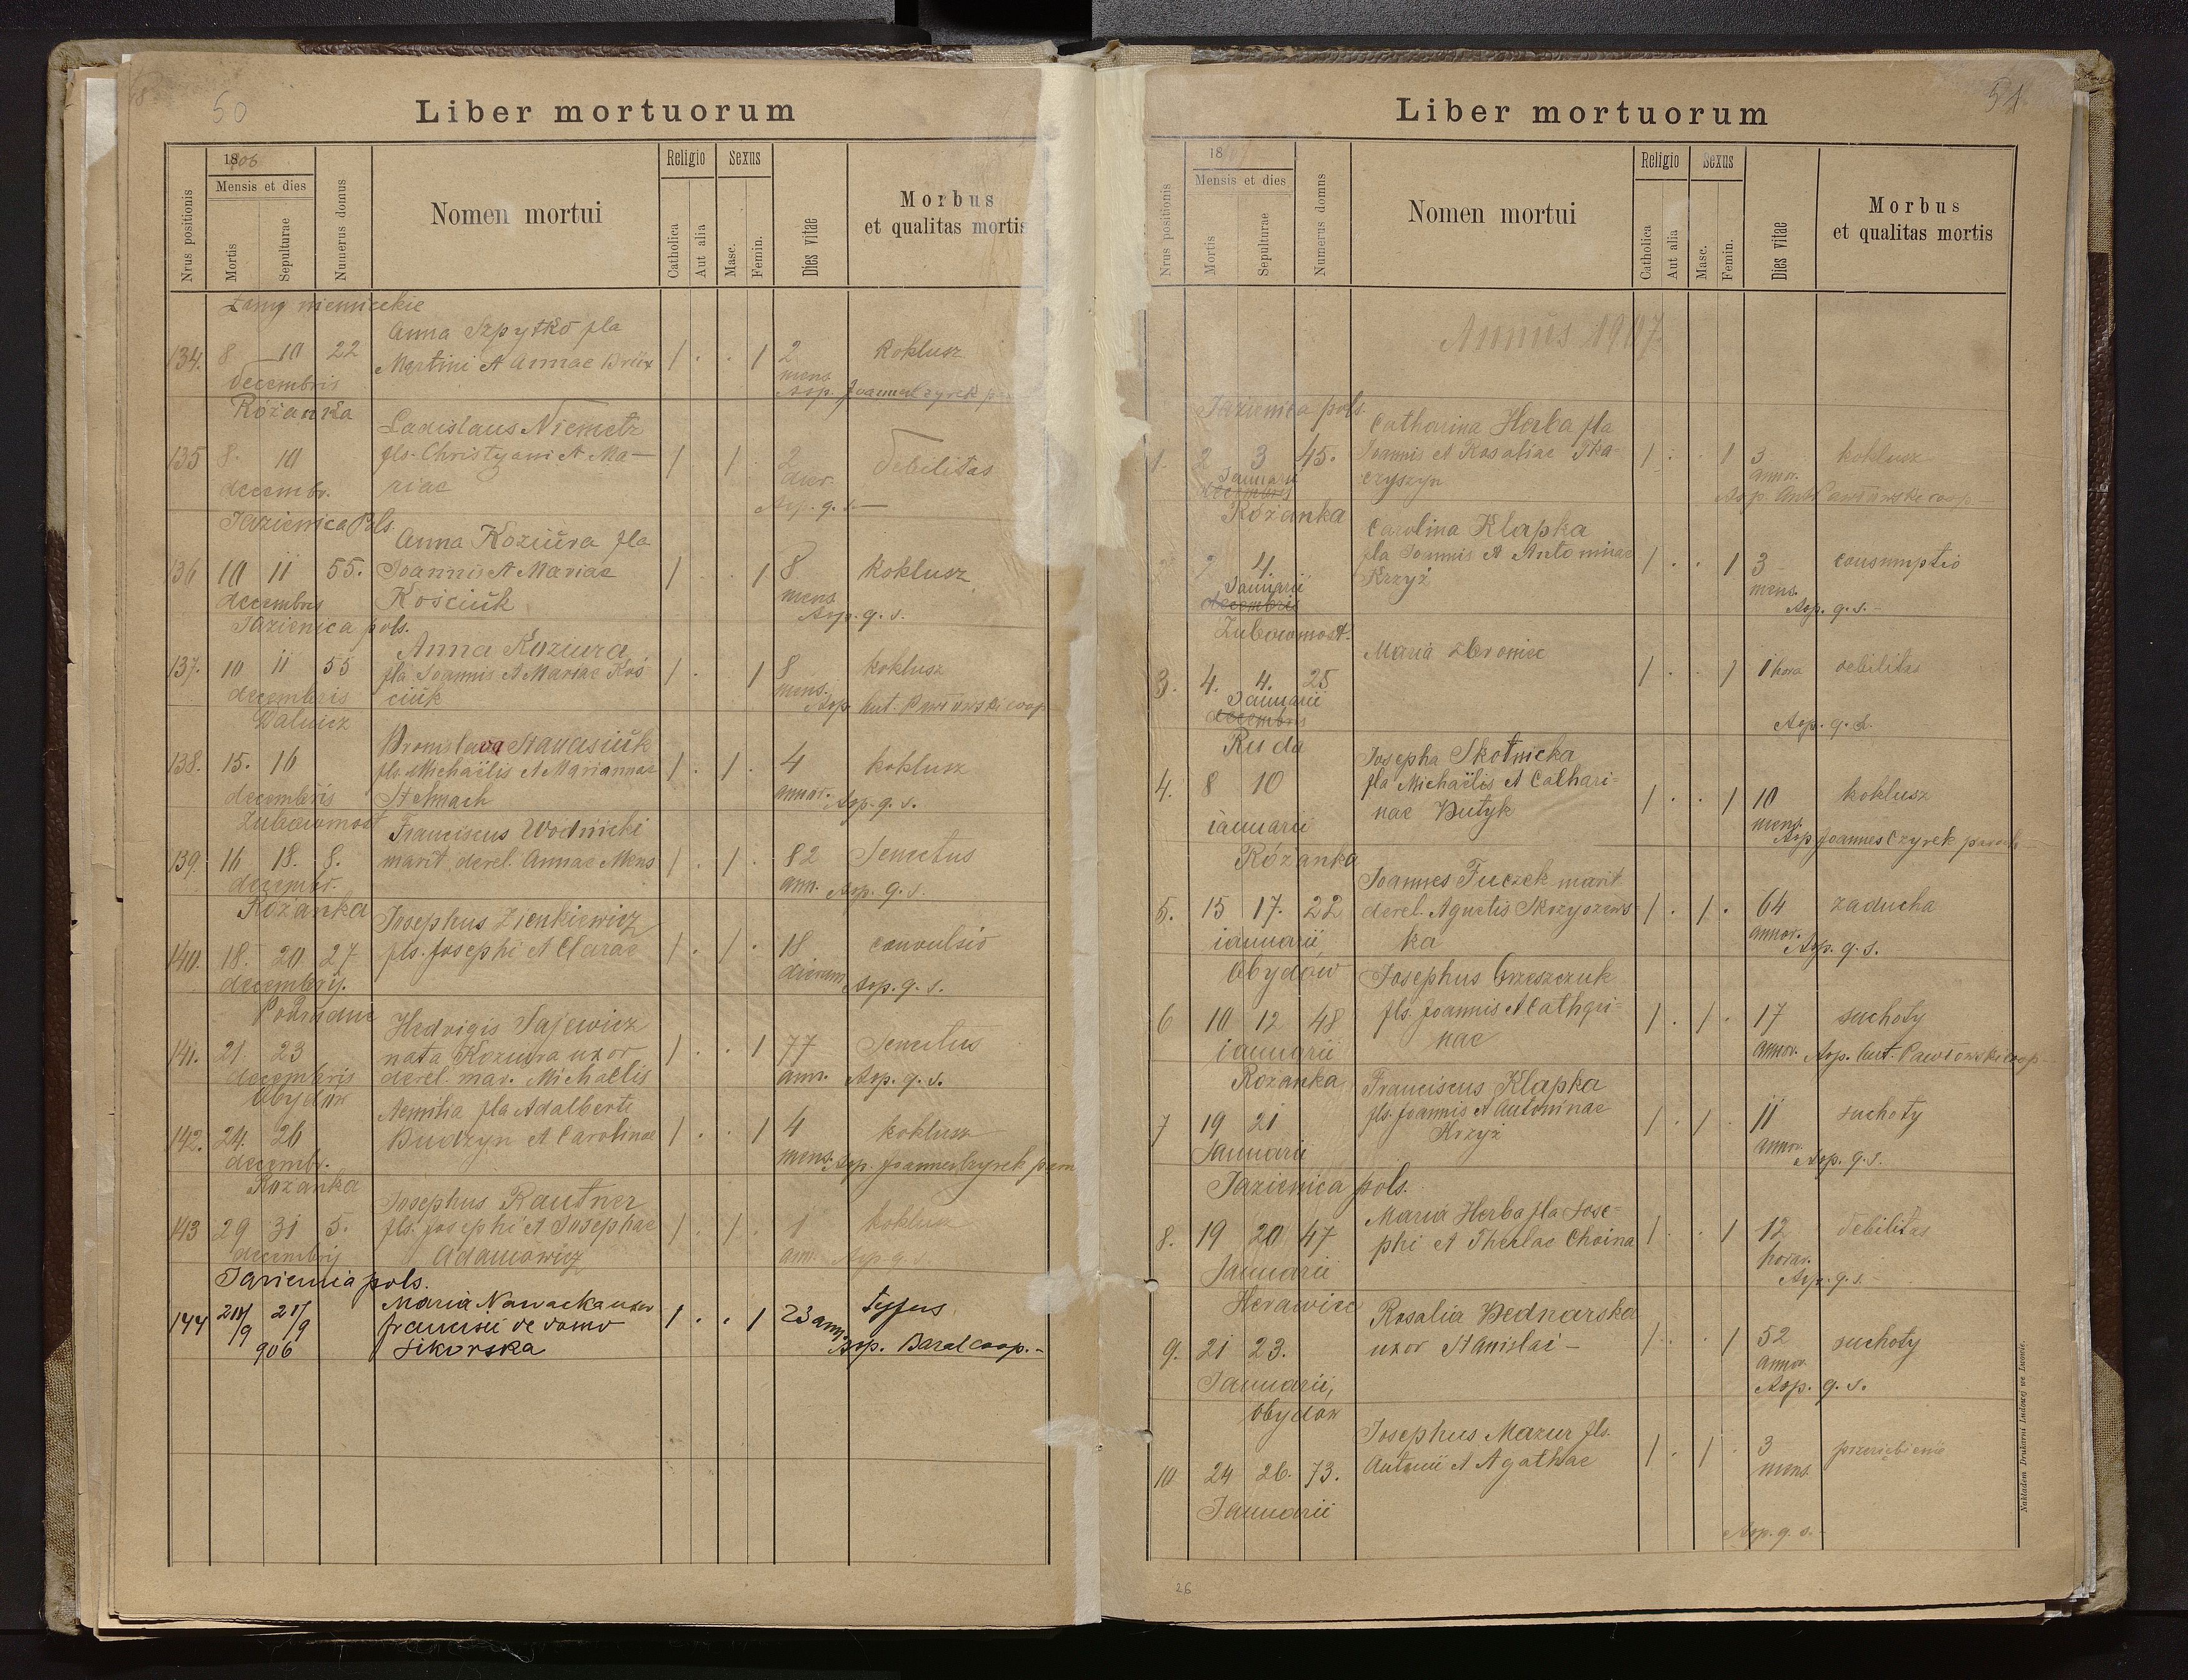 50
Liber mortuorum
1806
Mensis et dies
Nrus positionis
Mortis
Sepulturae
Numerus domus
Nomen mortui
Religio
Catholica
Aut alia
Sexus
Masc.
Femin.
Dies vitae
Morbus
et qualitas mortis
Łany niemieckie
Anna Szpytko fla
134. 8. 10 22 Martini et Annae Brüx 1 . . 1 2 koklusz
decembris mens.
Asp. Joannes Czyrek
Różanka
Ladislaus Niemetz
135 8. 10 fls. Christyani et Ma- 1 1 . 2 debilitas
decembr. riae dier.
Asp. q. s. —
Jazienica Pols.
Anna Koziura fla
136 10 11 55. Joannis et Mariae 1 . . 1 8 koklusz
decembris Kościuk mens.
Asp. q. s.
Jazienica pols.
Anna Koziura
137. 10 11 55 fla Joannis et Mariae Koś 1 . 1 8 koklusz
decembris ciuk mens.
Asp. Ant. Pawłowski coop
Batiicz
Bronislava Stanasiuk
138. 15. 16 fls. Michaëlis et Mariannae 1 . 1 . 4 koklusz
decembris Stelmach annor. Asp. q. s.
Zubowmost
Franciscus Woidnicki
139. 16 18. 8. marit. derel. Annae Mens 1 . 1 . 82 Senectus
decembr. ann. Asp. q. s.
Różanka
Josephus Zienkiewicz
140. 18. 20 27 fls. Josephi et Clarae 1 . 1 . 18 convulsio
decembrij. dierum Asp. q. s.
Hedvigis Sajewicz
141. 21. 23 nata Koziura uxor 1 . . 1 77 Senectus
decembris derel. mar. Michaelis ann. Asp. q. s.
Obydow
Aemilia fla Adalberti
142. 24. 26 Budzyn et Carolinae 1 . . 1 4 koklusz
decembr. mens. Asp. Joannes Czyrek
Różanka
Josephus Rautner
143 29 31 5. fls. Josephi et Josephae 1 . 1 . 1 koklusz
decembrij Adamowicz ann. Asp. q. s.
Jazienica pols.
Maria Nawacka uxor
144 21/9 21/9 Francisci de domo 1 . . 1 23 ann. Tyfus
906 Sikorska Asp. Baral coop. -
51
Liber mortuorum
18
Mensis et dies
Nrus positionis
Mortis
Sepulturae
Numerus domus
Nomen mortui
Religio
Catholica
Aut alia
Sexus
Masc.
Femin.
Dies vitae
Morbus
et qualitas mortis
Annus 1907.
Jazienica pols.
Catharina Herba fla
1. 2 3 45. Joannis et Rosaliae Tka- 1 . . 1 3 koklusz
Januarii czyszyn annor.
decembris Asp. Ant. Pawłowski coop
Różanka
Carolina Klapka
2 4. fla Joannis et Antoninae 1 . . 1 3 consumptio
Januarii Krzyż mens.
decembris Asp. q. s. -
Zubowmost.
Maria Zbroniec
3. 4. 4. 25 1 . . 1 1 hora debilitas
Januarii
decembris Asp. q. s.
Ruda
Josepha Skotnicka
4. 8 10 fla Michaëlis et Cathari- 1 . . 1 10 koklusz
ianuarii nae Butyk mens.
Asp Joannes Czyrek
Różanka
Joannes Tuczek marit
5. 15 17. 22 derel. Agnetis Skrzyszews- 1 . 1 . 64 zaducha
ianuarii ka annor.
Asp. q. s.
Obydów
Josephus Grzeszczuk
6 10 12 48 fls. Joannis et Cathari- 1 . 1 . 17 suchoty
ianuarii nae annor. Asp. Ant. Pawłowski coop
Różanka
Franciscus Klapka
7 19 21 fls. Joannis et Antoninae 1 . 1 . 11 suchoty
Januarii Krzyż annor.
Asp. q. s.
Jazienica pols.
Maria Herba fla Jose-
8. 19 20 47 phi et Theclae Choina 1 . . 1 12 debilitas
Januarii horar.
Asp. q. s. -
Rosalia Bednarska
9. 21 23. uxor Stanislai - 1 . . 1 52 suchoty
Januarii, annor.
Asp. q. s.
Obydow
Josephus Mazur fls.
10 24 26. 73. Antonii et Agathae 1 . 1 . 3 przeziębienie
Januarii mens.
Asp. q. s. -
Nakładem Drukarni Ludowej we Lwowie.
26